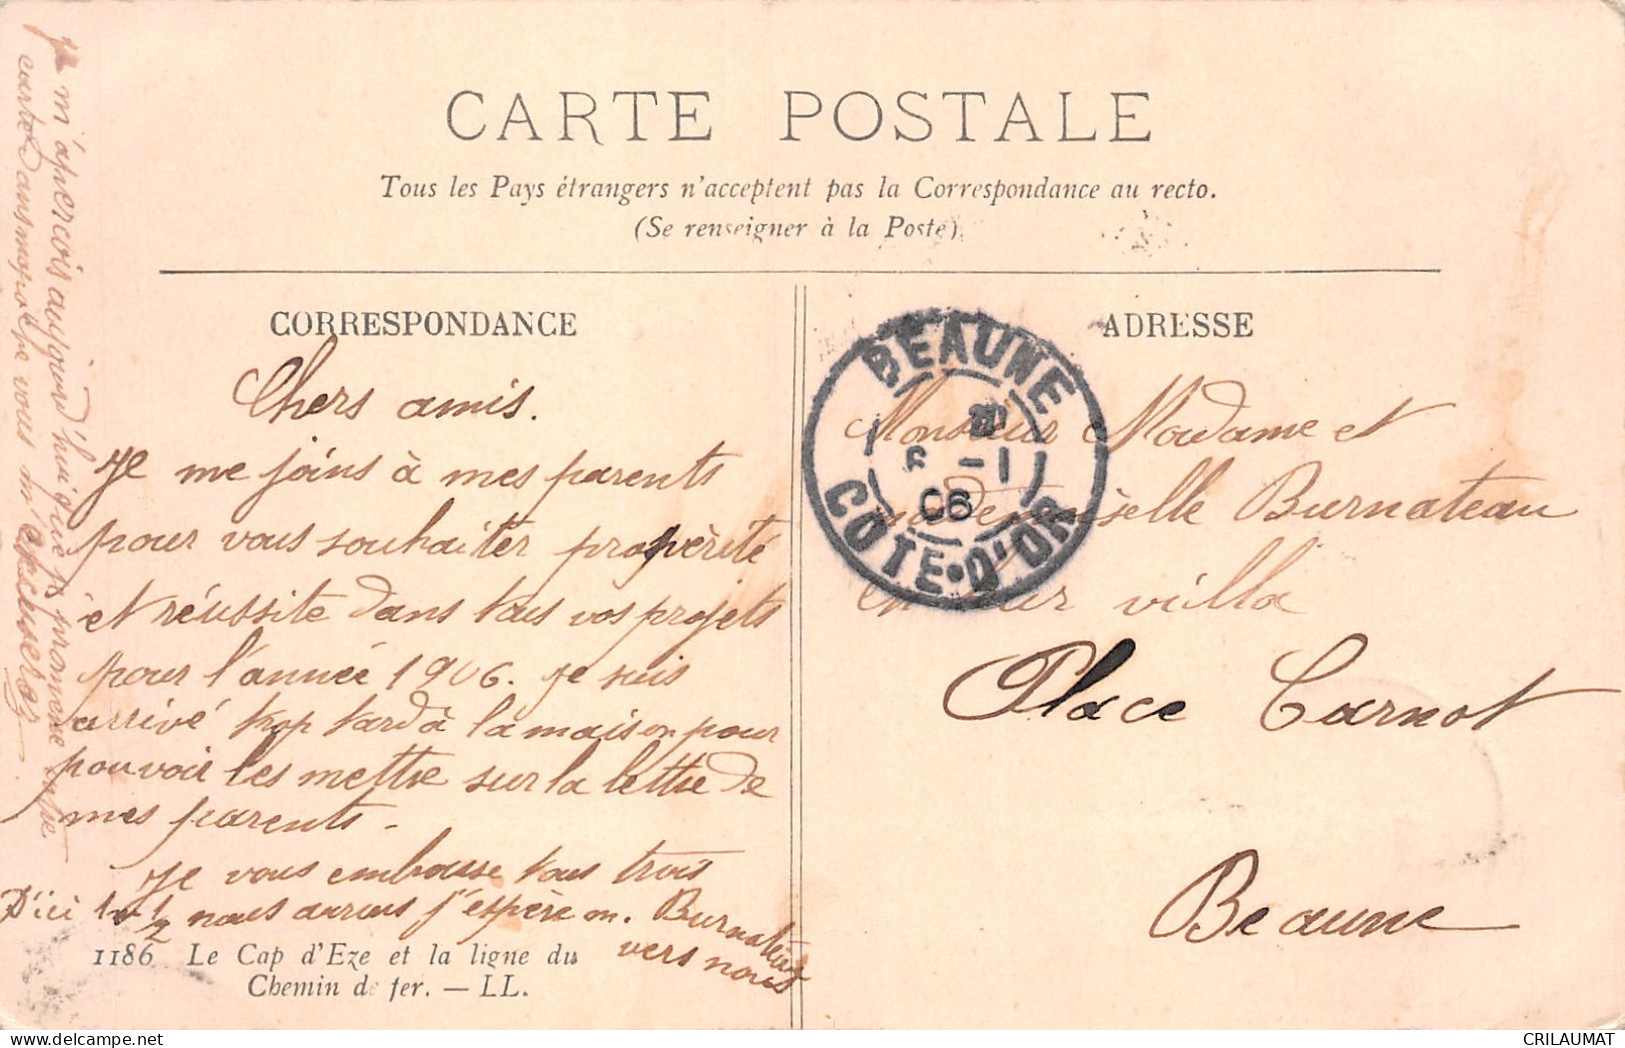 CARTE POSTALE
Tous les Pays étrangers n'acceptent pas la Correspondance au recto.
(Se renseigner à la Poste).
CORRESPONDANCE
Chers amis.
Je me joins à mes parents
pour vous souhaiter prospèrité
et réussite dans tous vos projets
pour l'année 1906. Je suis
arrivé trop tard à la maison pour
pouvoir les mettre sur la lettre de
mes parents.
Je vous embrasse tous trois
D'ici 1 an 1/2 nous aurons j'espère un Burnateau
vers nous
1186 Le Cap d'Eze et la ligne du
Chemin de fer. — LL.
Je m'aperçois aujourd'hui que je promène votre
carte dans ma poche vous m'excuserez
ADRESSE
BEAUNE
6 -1
06
COTE-D'OR
Monsieur Madame et
Mademoiselle Burnateau
en leur villa
Place Carnot
Beaune
CRILAUMAT